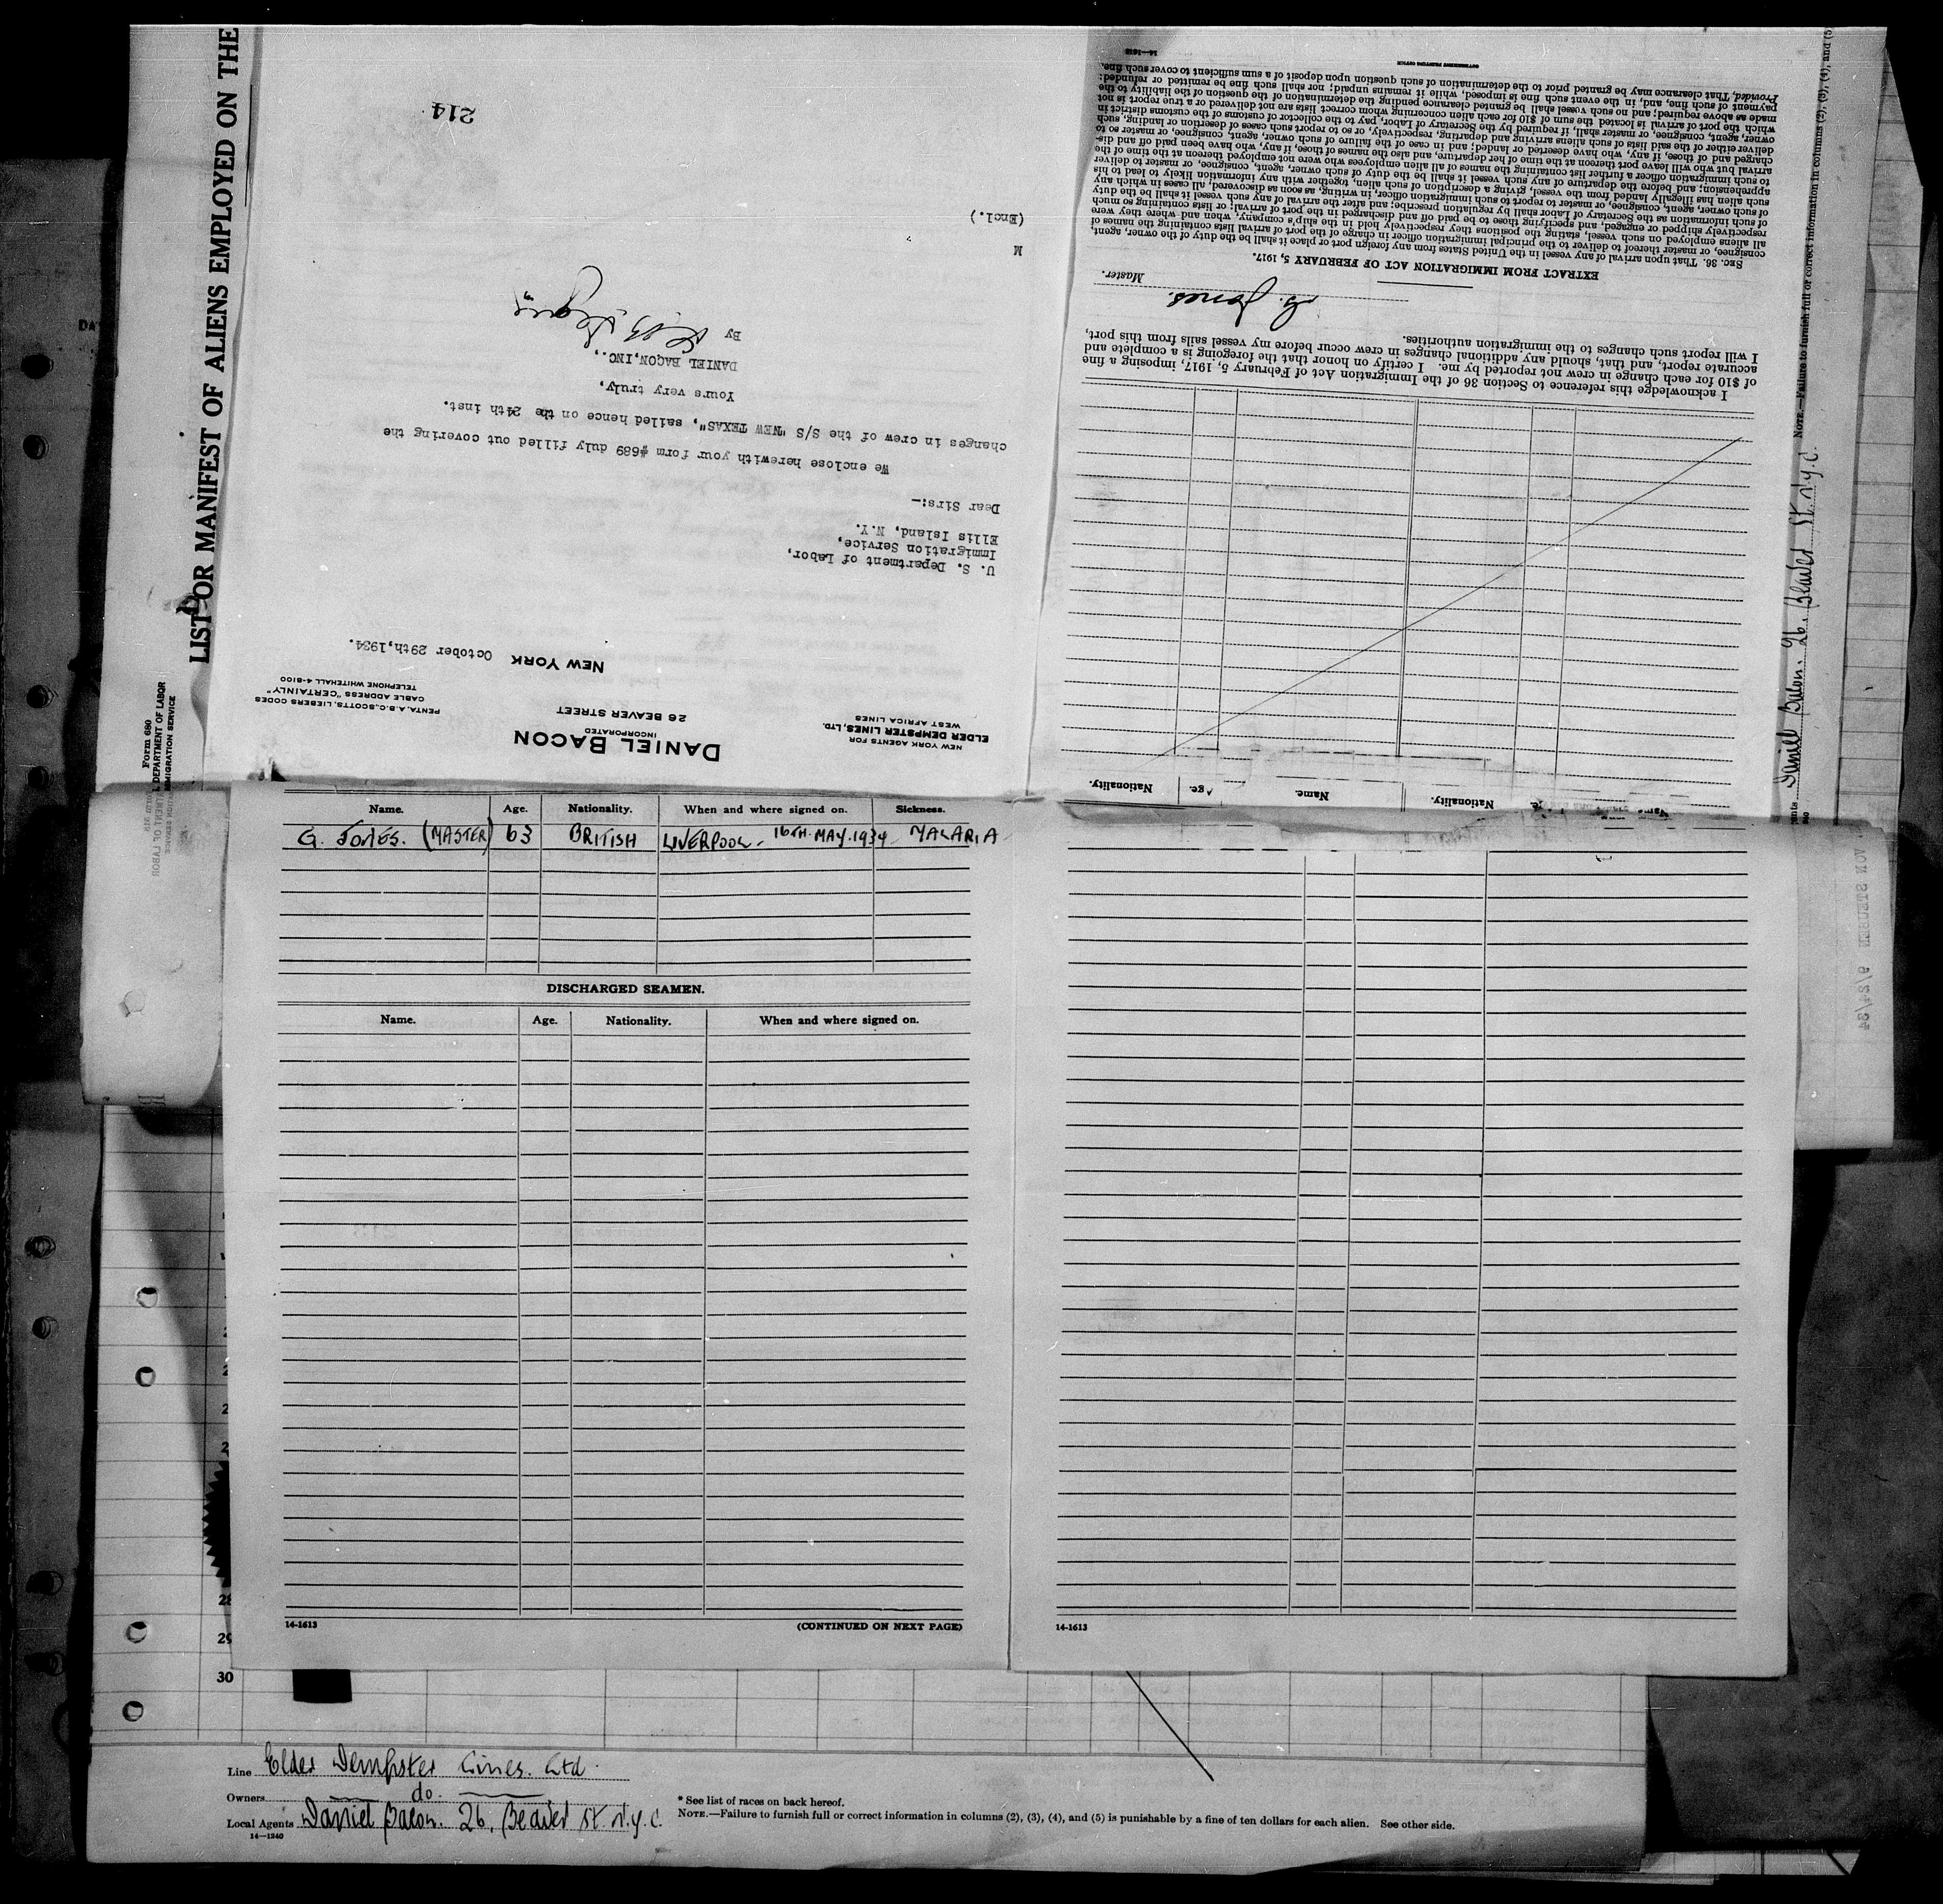 LIST OR MANIFEST OF ALIENS EMPLOYED ON THE
Form 680
DEPARTMENT OF LABOR
IMMIGRATION SERVICE
DANIEL BACON
INCORPORATED
26 BEAVER STREET
NEW YORK
NEW YORK AGENTS FOR
ELDER DEMPSTER LINES, LTD.
WEST AFRICA LINES
PENTA, A.B.C., SCOTTS, LIEBERS CODES
CABLE ADDRESS "CERTAINLY"
TELEPHONE WHITEHALL 4-8100
October 29th, 1934.
U. S. Department of Labor,
Immigration Service,
Ellis Island, N.Y.
Dear Sirs:-
We enclose herewith your form #689 duly filled out covering the
changes in crew of the S/S "NEW TEXAS", sailed hence on the 24th inst.
Yours very truly,
DANIEL BACON, INC.,
By
M
(Encl.)
214
Name. Age. Nationality.
I acknowledge this reference to Section 36 of the Immigration Act of February 5, 1917, imposing a fine
of $10 for each change in crew not reported by me. I certify on honor that the foregoing is a complete and
accurate report, and that, should any additional changes in crew occur before my vessel sails from this port,
I will report such changes to the immigration authorities.
G. Jones. Master.
EXTRACT FROM IMMIGRATION ACT OF FEBRUARY 5, 1917.
SEC. 36. That upon arrival of any vessel in the United States from any foreign port or place it shall be the duty of the owner, agent,
consignee, or master thereof to deliver to the principal immigration officer in charge of the port of arrival lists containing the names of
all aliens employed on such vessel, stating the positions they respectively hold in the ship's company, when and where they were
respectively shipped or engaged, and specifying those to be paid off and discharged in the port of arrival; or lists containing so much
of such information as the Secretary of Labor shall by regulation prescribe; and after the arrival of any such vessel it shall be the duty
of such owner, agent, consignee, or master to report to such immigration officer, in writing, as soon as discovered, all cases in which any
such alien has illegally landed from the vessel, giving a description of such alien, together with any information likely to lead to his
apprehension; and before the departure of any such vessel it shall be the duty of such owner, agent, consignee, or master to deliver
to such immigration officer a further list containing the names of all alien employees who were not employed thereon at the time of the
arrival but who will leave port thereon at the time of her departure, and also the names of those, if any, who have been paid off and dis-
charged and of those, if any, who have deserted or landed; and in case of the failure of such owner, agent, consignee, or master so to
deliver either of the said lists of such aliens arriving and departing, respectively, or so to report such cases of desertion or landing, such
owner, agent, consignee, or master shall, if required by the Secretary of Labor, pay to the collector of customs of the customs district in
which the port of arrival is located the sum of $10 for each alien concerning whom correct lists are not delivered or a true report is not
made as above required; and no such vessel shall be granted clearance pending the determination of the question of the liability to the
payment of such fine, and, in the event such fine is imposed, while it remains unpaid; nor shall such fine be remitted or refunded:
Provided, That clearance may be granted prior to the determination of such question upon deposit of a sum sufficient to cover such fine.
14-1613
Daniel Bacon. 26, Beaver St. N.Y.C.
NOTE.—Failure to furnish full or correct information in columns (2), (3), (4), and (5)
Name. Age. Nationality. When and where signed on. Sickness.
G. JONES. (MASTER) 63 BRITISH LIVERPOOL - 16TH. MAY. 1934 MALARIA
DISCHARGED SEAMEN.
Name. Age. Nationality. When and where signed on.
14-1613 (CONTINUED ON NEXT PAGE)
14-1613
28
29
30
Line Elder Dempster Lines. Ltd.
Owners do.
Local Agents Daniel Bacon. 26, Beaver St. N.Y.C.
14-1240
* See list of races on back hereof.
NOTE.—Failure to furnish full or correct information in columns (2), (3), (4), and (5) is punishable by a fine of ten dollars for each alien. See other side.